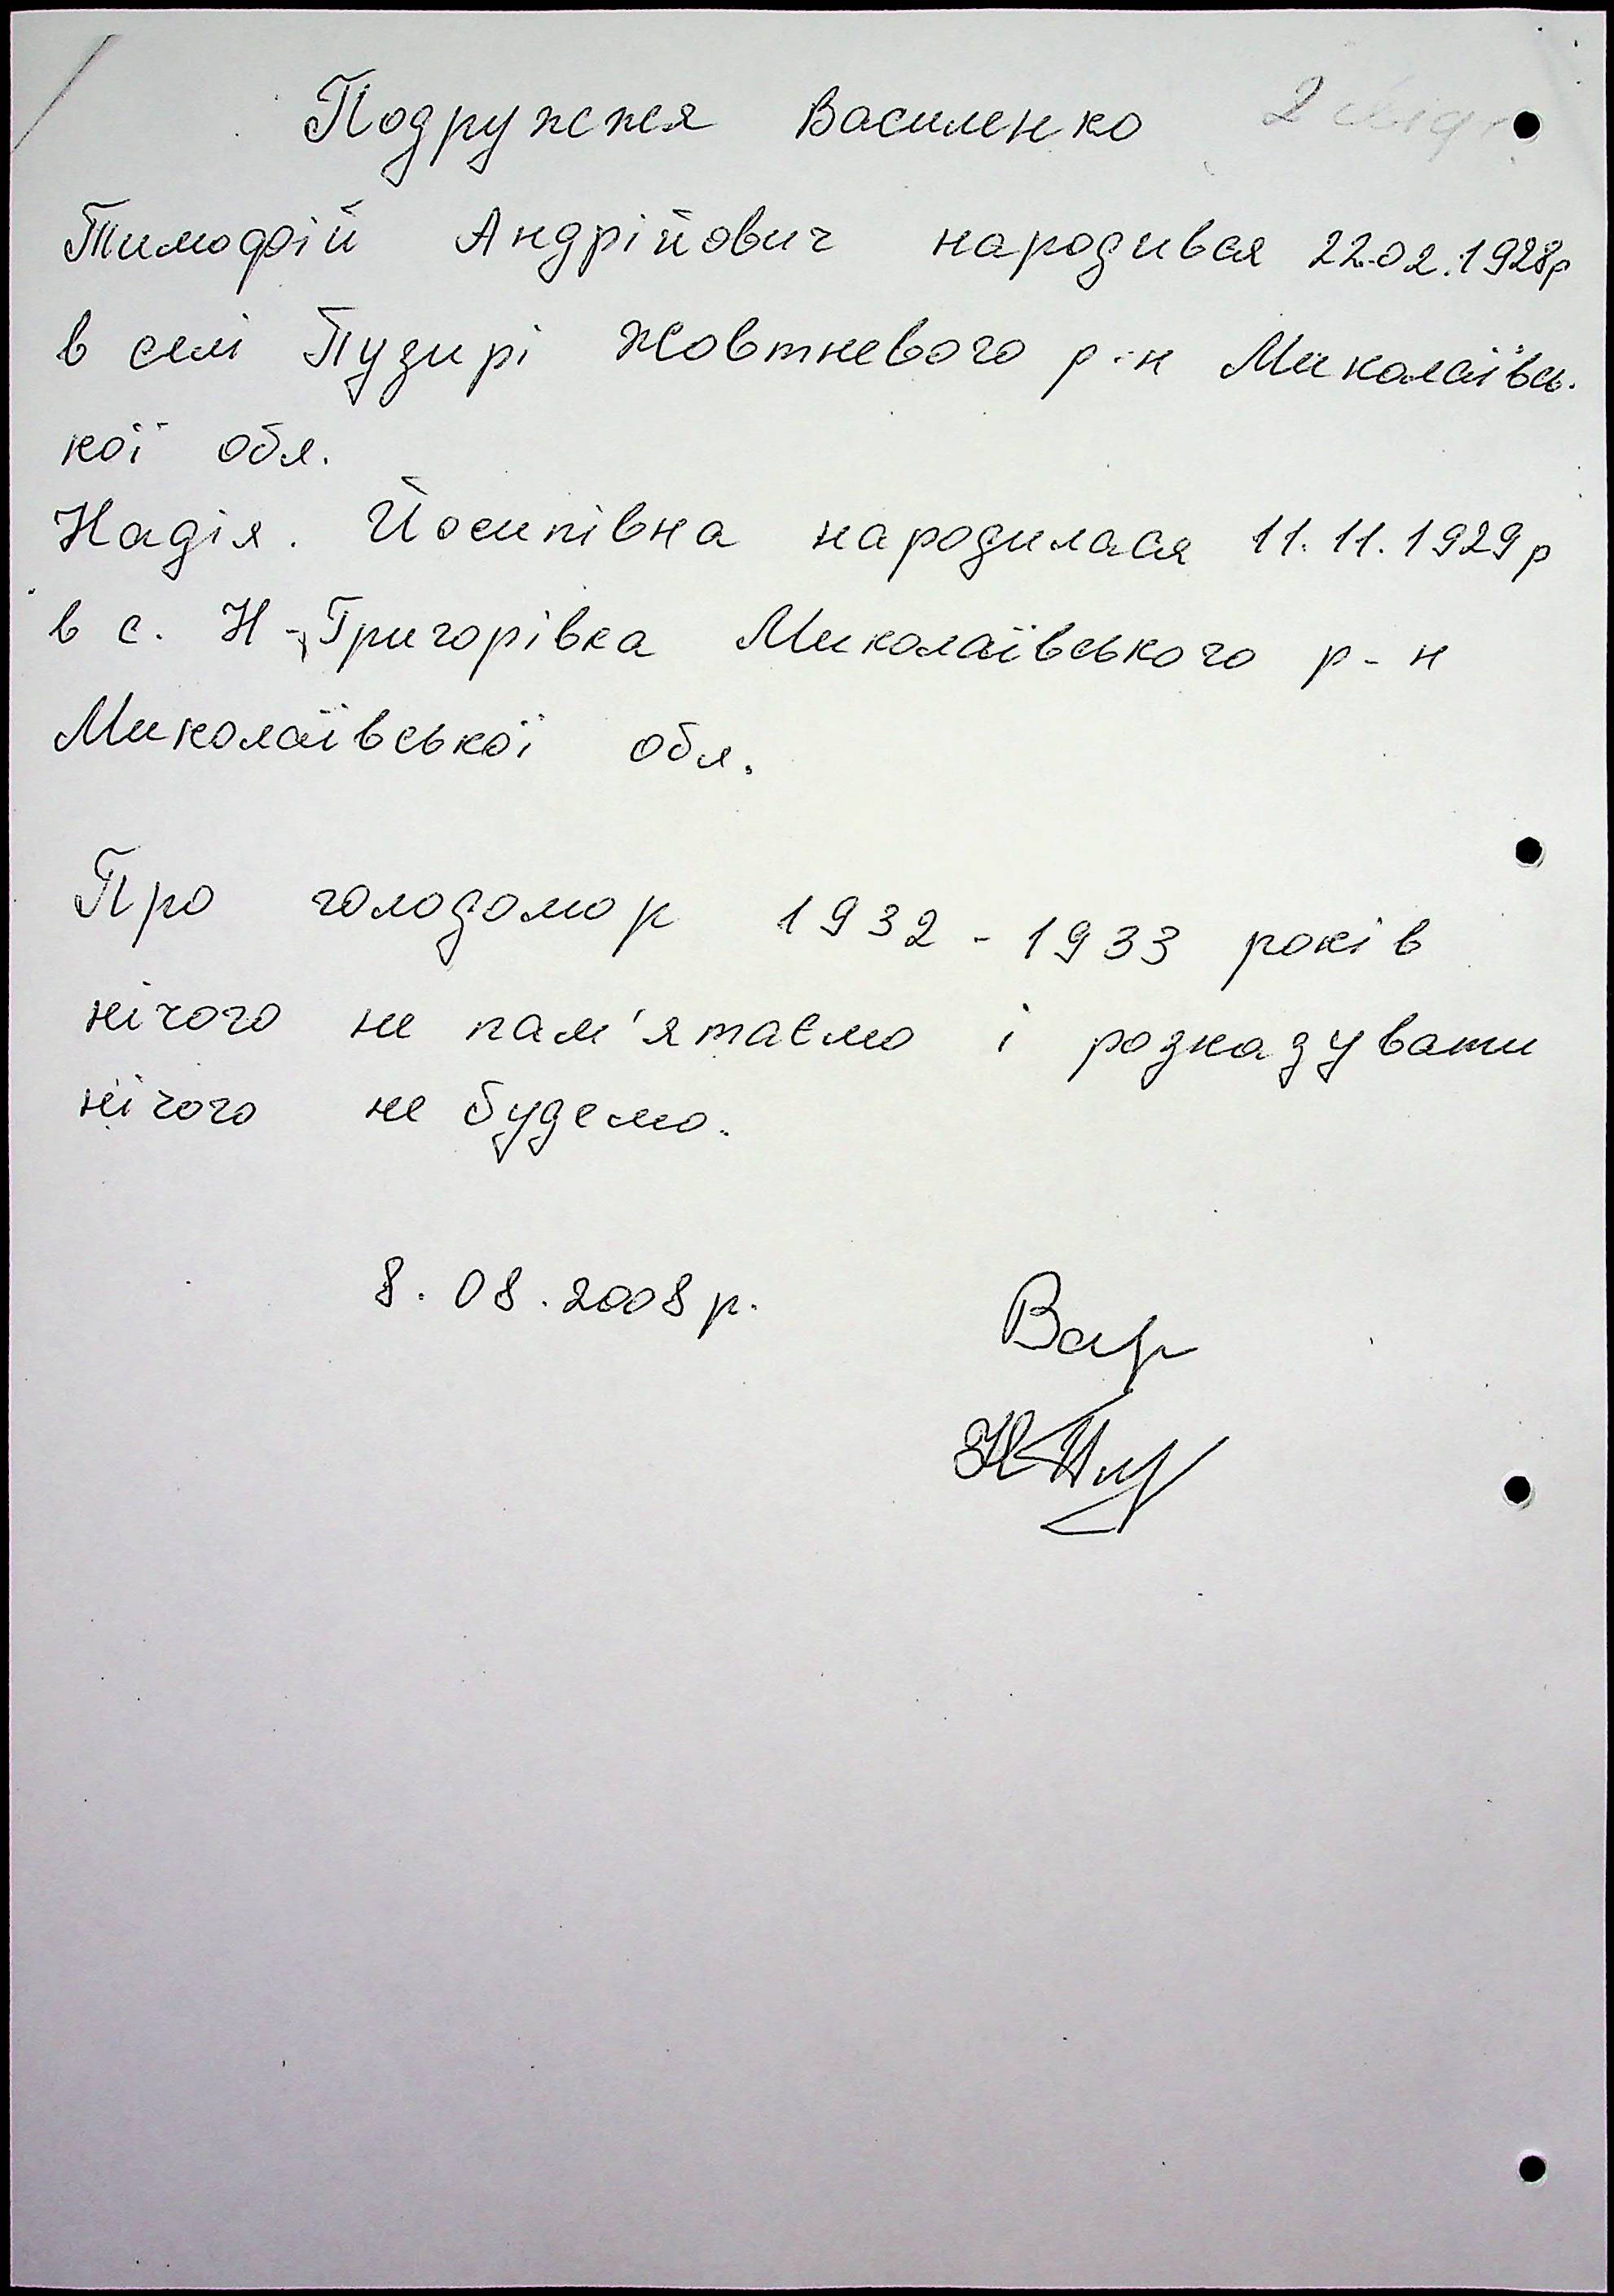 Подружжя Василенко 2
Тимофій Андрійович народився 22.02.1928р
в селі Пузирі Жовтневого р-н Миколаївсь.
кої обл.
Надія. Йосипівна народилася 11.11.1929р
в с. Н-Григорівка Миколаївського р-н
Миколаївської обл.
Про голодомор 1932-1933 років
нічого не пам'ятаємо і розказувати
нічого не будемо.
8.08.2008р.